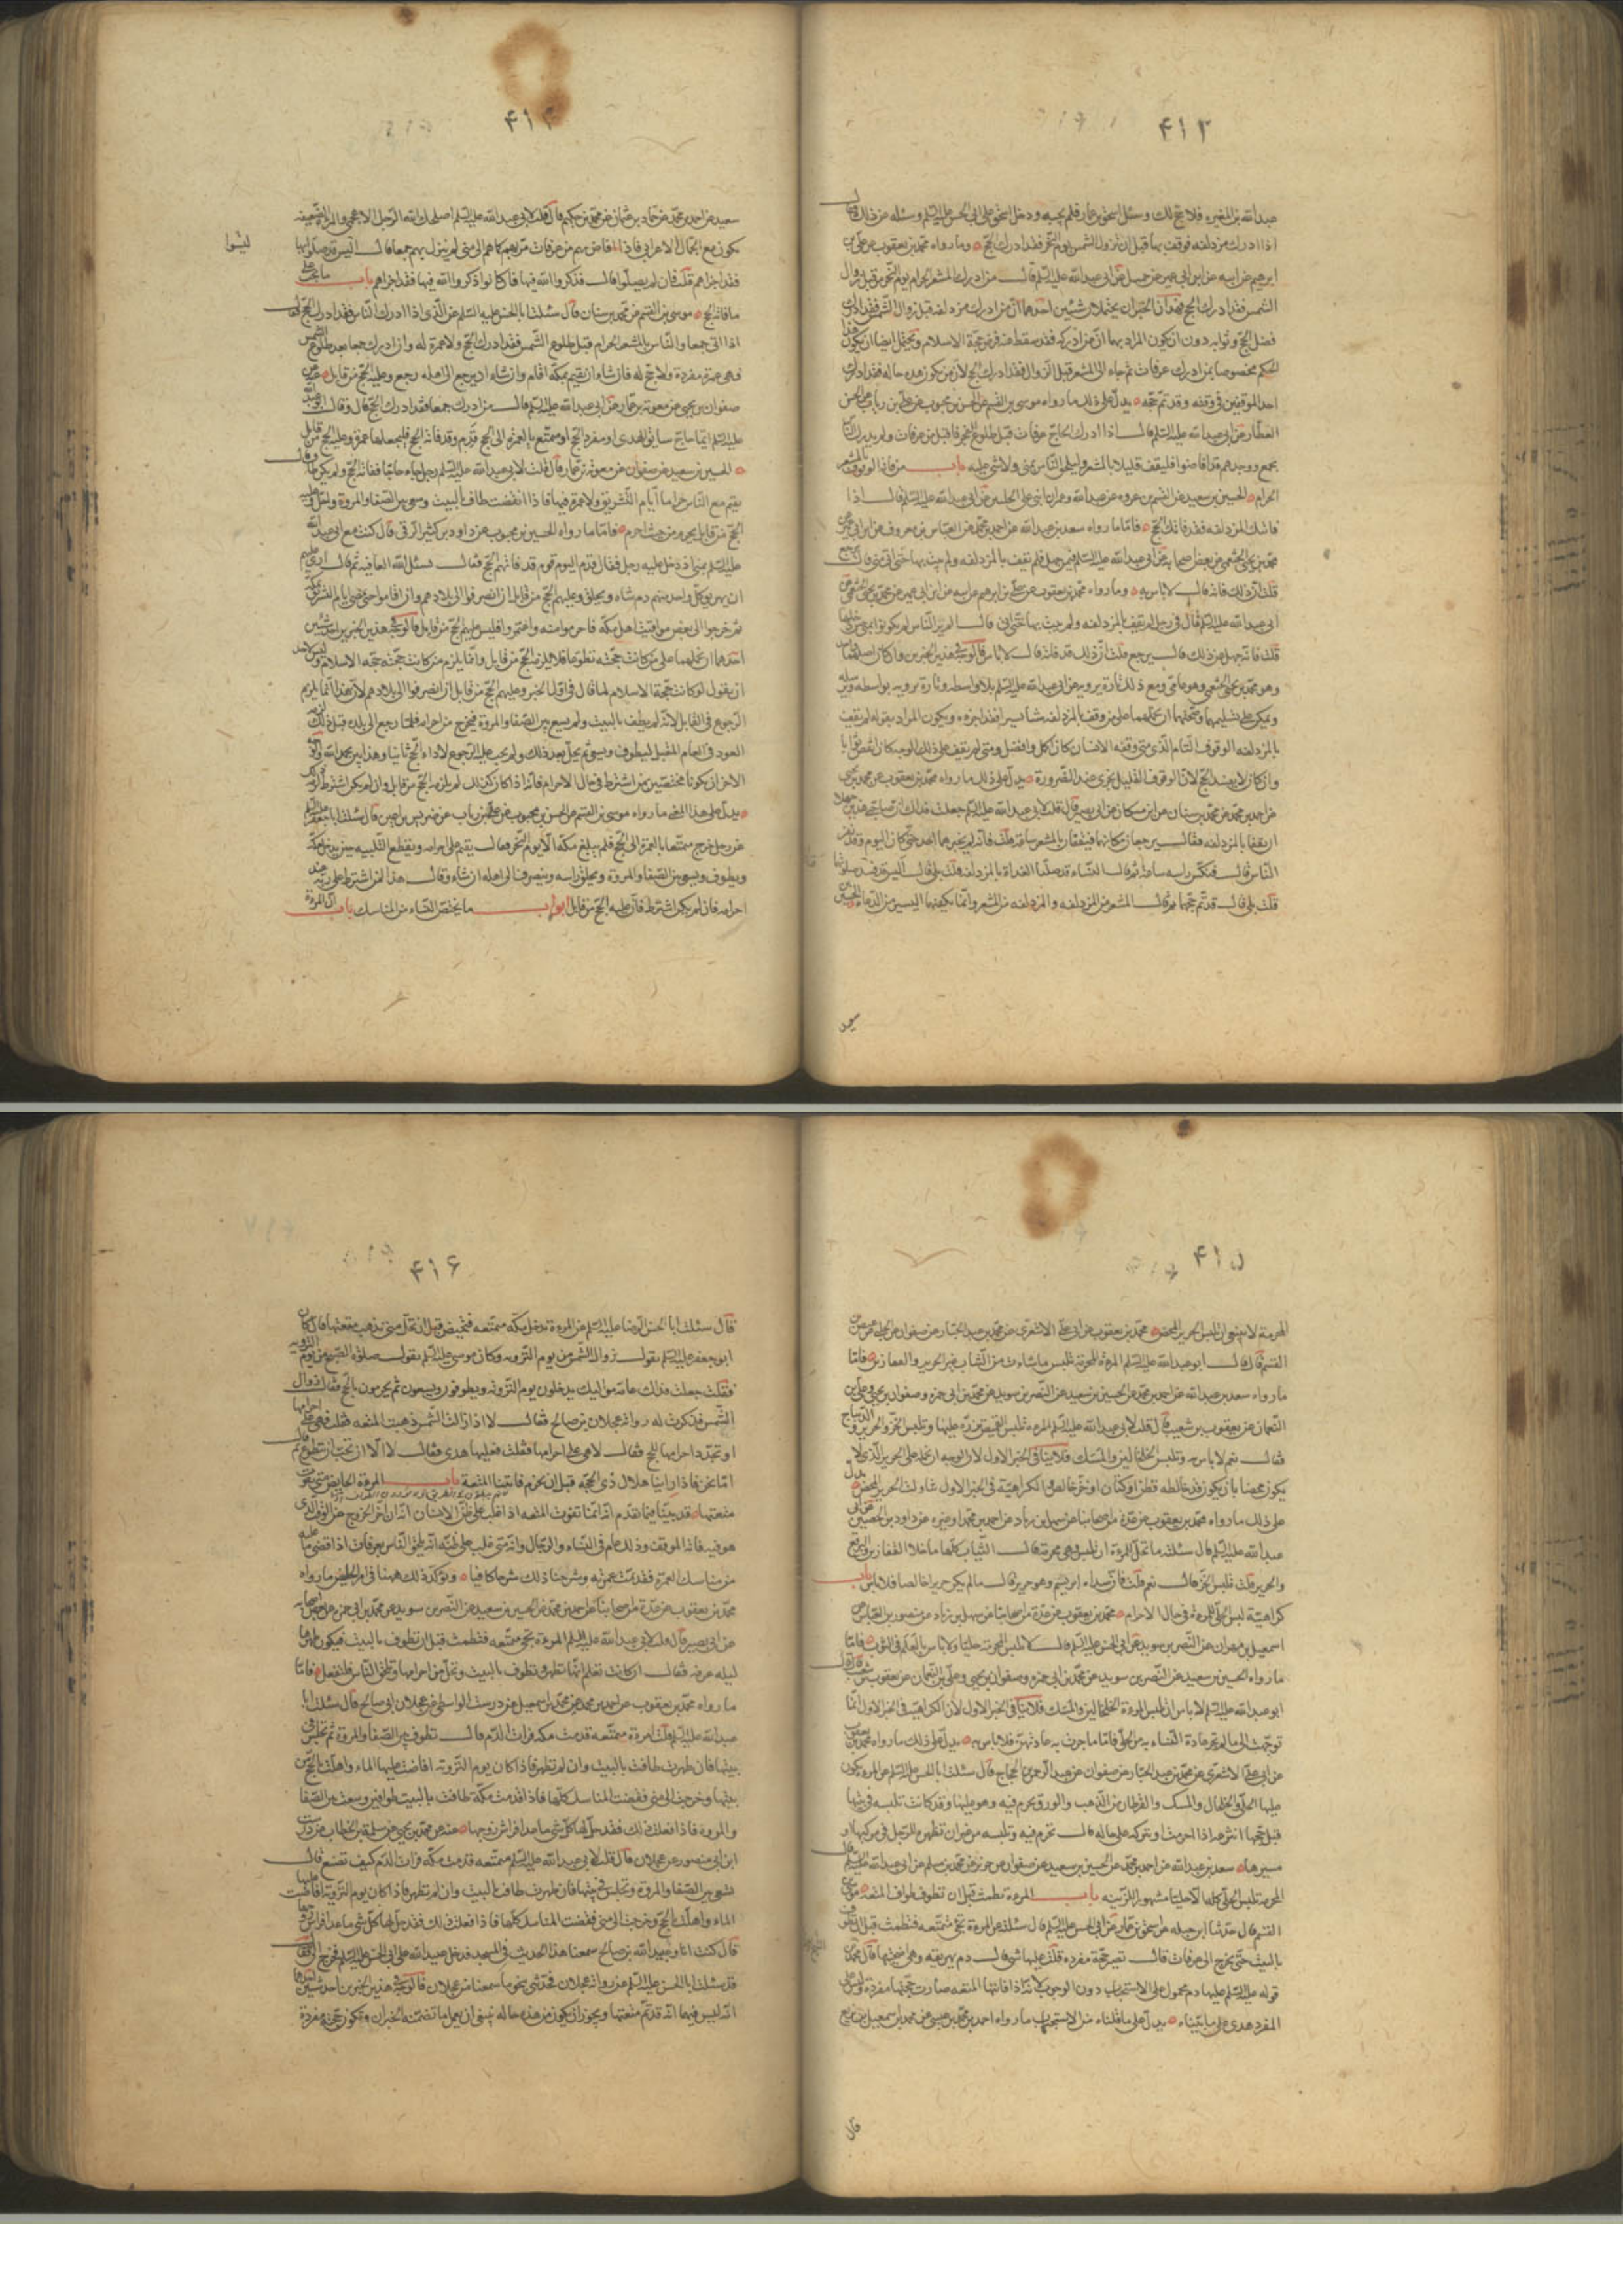 ۴۱۳
عبد الله بن المغيرة فلا حج لك وسئل اسحق بن عمار فلم يجبه ودخل اسحق على ابى الحسن عليه السلم وسئله عن ذلك فقال
اذا ادرك مزدلفه فوقف بها قبل ان تزول الشمس يوم النحر فقد ادرك الحج وما رواه محمد بن يعقوب عن على بن
ابرهيم عن ابيه عن ابن ابى عمير عن جميل عن ابى عبد الله عليه السلم قال من ادرك المشعر الحرام يوم النحر من قبل زوال
الشمس فقد ادرك الحج فهذان الخبران يحتملان شيئين احدهما ان من ادرك مزدلفه قبل زوال الشمس فقد ادرك
فضل الحج وثوابه دون ان يكون المراد بهما ان من ادركه فقد سقط عنه فرض حجة الاسلام ويحتمل ايضا ان يكون هذا
الحكم مخصوصا بمن ادرك عرفات ثم جاء الى المشعر قبل الزوال فقد ادرك الحج لان من يكون هذه حاله فقد ادرك
احد الموقفين فى وقته وقد تم حجه يدل على ذلك ما رواه موسى بن القسم عن الحسن بن محبوب عن على بن رياب عن الحسن
العطار عن ابى عبد الله عليه السلم قال اذا ادرك الحاج عرفات قبل طلوع الفجر فاقبل من عرفات ولم يدرك الناس
بجمع ووجدهم قد افاضوا فليقف قليلا بالمشعر وليلحق الناس بمنى ولا شئ عليه باب من فاته الوقوف بالمشعر
الحرام الحسين بن سعيد عن القسم بن عروه عن عبيد الله وعمران ابنى على الحلبيين عن ابى عبد الله عليه السلم قال اذا
فاتتك المزدلفه فقد فاتك الحج فاما ما رواه سعد بن عبد الله عن احمد بن محمد عن العباس بن معروف عن ابن ابى عمير عن
محمد بن يحيى الخثعمى عن بعض اصحابه عن ابى عبد الله عليه السلم فيمن جهل فلم يقف بالمزدلفه ولم يبت بها حتى اتى منى قال يرجع
قلت ان ذلك فاته قال لا باس به وما رواه محمد بن يعقوب عن على بن ابرهيم عن ابيه عن ابن ابى عمير عن محمد بن يحيى الخثعمى عن
ابى عبد الله عليه السلم قال فى رجل لم يقف بالمزدلفه ولم يبت بها حتى اتى منى قال الم ير الناس لم يكونوا بمنى حين دخلها
قلت فانه جهل عن ذلك قال يرجع قلت ان ذلك قد فاته قال لا باس فالوجه فى هذين الخبرين وان كان اصلهما واحد
وهو محمد بن يحيى الخثعمى وهو عامى ومع ذلك تارة يرويه عن ابى عبد الله عليه السلم بلا واسطه وتارة يرويه بواسطه ويرسله
ويمكن على تسليمهما وصحتهما ان نحملهما على من وقف بالمزدلفه شيئا يسيرا فقد اجزءه ويكون المراد بقوله لم يقف
بالمزدلفه الوقوف التام الذى متى وقفه الانسان كان اكمل وافضل ومتى لم يقف على ذلك الوجه كان انقص ثوابا
وان كان لا يفسد الحج لان الوقوف القليل يجزى عند الضرورة يدل على ذلك ما رواه محمد بن يعقوب عن محمد بن يحيى
عن احمد بن محمد عن محمد بن سنان عن ابن مسكان عن ابى بصير قال قلت لابى عبد الله عليه السلم جعلت فداك ان صاحبى هذين جهلا
ان يقفا بالمزدلفه فقال يرجعان مكانهما فيقفان بالمشعر ساعة قلت فانه لم يخبرهما احد حتى كان اليوم وقد نفر
الناس قال فنكس راسه ساعة ثم قال اليسا قد صليا الغداة بالمزدلفه قلت بلى قال اليس قد قنتا فى صلوتهما
قلت بلى قال قد تم حجهما ثم قال المشعر من المزدلفه والمزدلفه من المشعر وانما يكفيهما اليسير من الدعاء الحسين
سعيد
۴۱۴
سعيد عن احمد بن محمد عن حماد بن عثمان عن محمد بن حكيم قال قلت لابى عبد الله عليه السلم اصلحك الله الرجل الاعجمى والمراة الضعيفه
يكون مع الجمال الاعرابى فاذا افاض بهم من عرفات مر بهم كما هم الى منى لم ينزل بهم جمعا فقال اليس قد صلوا بها
ليثبوا
فقد اجزاهم قلت فان لم يصلوا قال فذكروا الله فيها فان كانوا ذكروا الله فيها فقد اجزاهم باب ما يجب على
من فاته الحج موسى بن القسم عن محمد بن سنان قال سئلت ابا الحسن عليه السلم عن الذى اذا ادرك الناس فقد ادرك الحج فقال
اذا اتى جمعا والناس بالمشعر الحرام قبل طلوع الشمس فقد ادرك الحج ولا عمرة له وان ادرك جمعا بعد طلوع الشمس
فهى عمرة مفردة ولا حج له فان شاء ان يقيم بمكة اقام وان شاء ان يرجع الى اهله رجع وعليه الحج من قابل عنه عن
صفوان بن يحيى عن معوية بن عمار عن ابى عبد الله عليه السلم قال من ادرك جمعا فقد ادرك الحج قال وقال ابو عبد الله
عليه السلم ايما حاج سايق للهدى او مفرد للحج او متمتع بالعمرة الى الحج قدم وقد فاته الحج فليجعلها عمرة وعليه الحج من قابل
الحسين بن سعيد عن صفوان عن معوية بن عمار قال قلت لابى عبد الله عليه السلم رجل جاء حاجا ففاته الحج ولم يكن طاف قال
يقيم مع الناس حراما ايام التشريق ولا عمرة فيها فاذا انقضت طاف بالبيت وسعى بين الصفا والمروة واحل وعليه
الحج من قابل يحرم من حيث احرم فاما ما رواه الحسين بن محبوب عن داود بن كثير الرقى قال كنت مع ابى عبد الله
عليه السلم بمنى اذ دخل عليه رجل فقال قدم اليوم قوم قد فاتهم الحج فقال نسئل الله العافيه ثم قال ارى عليهم
ان يهريق كل واحد منهم دم شاه ويحلق وعليهم الحج من قابل ان انصرفوا الى بلادهم وان اقاموا حتى تمضى ايام التشريق بمكة
ثم خرجوا الى بعض مواقيت اهل مكة فاحرموا منه واعتمروا فليس عليهم الحج من قابل فالوجه فى هذين الخبرين احد شيئين
احدهما ان نحملهما على من كانت حجته تطوعا فلا يلزمه الحج من قابل وانما يلزم من كانت حجته حجة الاسلام وليس لاحد
ان يقول لو كانت حجة الاسلام لما قال فى اول الخبر وعليهم الحج من قابل ان انصرفوا الى بلادهم لان هذا انما يلزم
الرجوع فى القابل لانه لم يطف بالبيت ولم يسع بين الصفا والمروة فيخرج من احرامه فلما رجع الى بلده قبل ذلك لزمه
العود فى العام المقبل ليطوف ويسعى ثم يحل بعد ذلك ولم يجب عليه الرجوع لاداء الحج ثانيا وهذا بين بحمد الله والوجه
الاخر ان يكونا مختصين بمن اشترط فى حال الاحرام فانه اذا كان كذلك لم يلزمه الحج من قابل وان لم يكن اشترط لزمه ذلك
يدل على هذا المعنى ما رواه موسى بن القسم عن الحسن بن محبوب عن على بن رياب عن ضريس بن اعين قال سئلت ابا جعفر عليه السلم
عن رجل خرج متمتعا بالعمرة الى الحج فلم يبلغ مكة الا يوم النحر فقال يقيم على احرامه ويقطع التلبيه حين يدخل مكة
ويطوف ويسعى بين الصفا والمروة ويحلق راسه وينصرف الى اهله ان شاء وقال هذا لمن اشترط على ربه عند
احرامه فان لم يكن اشترط فان عليه الحج من قابل ابواب ما يختص النساء من المناسك باب ان المرءة
۴۱۵
المحرمة لا ينبغى ان تلبس الحرير المحض محمد بن يعقوب عن ابى على الاشعرى عن محمد بن عبد الجبار عن صفوان بن يحيى عن عيص بن
القسم قال قال ابو عبد الله عليه السلم المرءة المحرمة تلبس ما شاءت من الثياب غير الحرير والقفازين فاما
ما رواه سعد بن عبد الله عن احمد بن محمد عن الحسين بن سعيد عن النضر بن سويد عن محمد بن ابى حمزه وصفوان بن يحيى وعلى بن
النعمان عن يعقوب بن شعيب قال قلت لابى عبد الله عليه السلم المرءة تلبس القميص تزره عليها وتلبس الخز والحرير والديباج
فقال نعم لا باس به وتلبس الخلخالين والمسك فلا ينافى الخبر الاول لان الوجه ان نحمله على الحرير الذى لا
يكون محضا بان يكون قد خالطه قطن او كتان او خز خالص والكراهية فى الخبر الاول تناولت الحرير المحض يدل
على ذلك ما رواه محمد بن يعقوب عن عدة من اصحابنا عن سهل بن زياد عن احمد بن محمد او غيره عن داود بن الحصين عن ابى
عبد الله عليه السلم قال سئلته ما تحل للمرءة ان تلبس وهى محرمة قال الثياب كلها ما خلا القفازين والبرقع
والحرير قلت تلبس الخز قال نعم قلت فان سداه ابريسم وهو حرير قال ما لم يكن حريرا خالصا فلا باس باب
كراهية لبس الحلى للمرءة فى حال الاحرام محمد بن يعقوب عن عدة من اصحابنا عن سهل بن زياد عن منصور بن العباس عن
اسمعيل بن مهران عن النضر بن سويد عن ابى الحسن عليه السلم قال لا تلبس المحرمة حليا ولا باس بالعلم فى الثوب فاما
ما رواه الحسين بن سعيد عن النضر بن سويد عن محمد بن ابى حمزه وصفوان بن يحيى وعلى بن النعمان عن يعقوب بن شعيب قال قال
ابو عبد الله عليه السلم لا باس ان تلبس المرءة الخلخالين والمسك فلا ينافى الخبر الاول لان الكراهية فى الخبر الاول انما
توجهت الى ما لم تجر عادة النساء به من الحلى فاما ما جرت به عادتهن فلا باس به يدل على ذلك ما رواه محمد بن يعقوب
عن ابى على الاشعرى عن محمد بن عبد الجبار عن صفوان عن عبد الرحمن بن الحجاج قال سئلت ابا الحسن عليه السلم عن المرءة يكون
عليها الحلى والخلخال والمسك والقرطان من الذهب والورق تحرم فيه وهو عليها وقد كانت تلبسه فى بيتها
قبل حجها انتزعه اذا احرمت او تتركه على حاله قال تحرم فيه وتلبسه من غير ان تظهره للرجال فى مركبها و
مسيرها سعد بن عبد الله عن احمد بن محمد عن الحسين بن سعيد عن صفوان عن حريز عن محمد بن مسلم عن ابى عبد الله عليه السلم قال
المحرمة تلبس الحلى كله الا حليا مشهورا للزينه باب المرءة تطمث قبل ان تطوف طواف المتعه موسى بن
القسم قال حدثنا ابن جبله عن اسحق بن عمار عن ابى الحسن عليه السلم قال سئلته عن المرءة تجئ متمتعه فتطمث قبل ان تطوف
بالبيت حتى تخرج الى عرفات قال تصير حجة مفردة قلت عليها شئ قال دم تهريقه وهى اضحيتها قال محمد بن
قوله عليه السلم عليها دم محمول على الاستحباب دون الوجوب لانه اذا فاتتها المتعه صارت حجتها مفردة وليس على
المفرد هدى على ما بيناه يدل على ما قلناه من الاستحباب ما رواه احمد بن محمد بن عيسى عن محمد بن اسمعيل بن بزيع
قال
۴۱۶
قال سئلت ابا الحسن الرضا عليه السلم عن المرءة تدخل مكة متمتعه فتحيض قبل ان تحل متى تذهب متعتها قال كان
ابو جعفر عليه السلم يقول زوال الشمس من يوم الترويه وكان موسى عليه السلم يقول صلوة الصبح من يوم الترويه
فقلت جعلت فداك عامة مواليك يدخلون يوم الترويه ويطوفون ويسعون ثم يحرمون بالحج فقال زوال
الشمس فذكرت له رواية عجلان بن صالح فقال لا اذا زالت الشمس ذهبت المتعه فقلت فهى على احرامها
او تجدد احرامها للحج فقال لا هى على احرامها فقلت فعليها هدى فقال لا الا ان تحب ان تطوع ثم قال
اما نحن فاذا راينا هلال ذى الحجه قبل ان نحرم فاتتنا المتعه باب المرءة الحايض متى تفوت
متعتها قد بينا فيما تقدم انه انما تفوت المتعه اذا غلب على ظن الانسان انه ان اخر الخروج عن الوقت الذى
هو فيه فاته الموقف وذلك عام فى النساء والرجال وانه متى غلب على ظنه انه يلحق الناس بعرفات اذا قضى ما عليه
من مناسك العمرة فقد تمت عمرته وشرحنا ذلك شرحا كافيا ويؤكد ذلك ههنا فى امر الحايض ما رواه
محمد بن يعقوب عن عدة من اصحابنا عن احمد بن محمد عن الحسين بن سعيد عن النضر بن سويد عن محمد بن ابى حمزه عن بعض اصحابه
عن ابى بصير قال قلت لابى عبد الله عليه السلم المرءة تجئ متمتعه فتطمث قبل ان تطوف بالبيت فيكون طهرها
ليلة عرفه فقال ان كانت تعلم انها تطهر وتطوف بالبيت وتحل من احرامها وتلحق الناس فلتفعل فاما
ما رواه محمد بن يعقوب عن احمد بن محمد عن محمد بن اسمعيل عن درست الواسطى عن عجلان ابى صالح قال سئلت ابا
عبد الله عليه السلم قلت امرءة متمتعه قدمت مكه فرات الدم قال تطوف بين الصفا والمروة ثم تجلس فى
بيتها فان طهرت طافت بالبيت وان لم تطهر فاذا كان يوم الترويه افاضت عليها الماء واهلت بالحج من
بيتها وخرجت الى منى فقضت المناسك كلها فاذا قدمت مكة طافت بالبيت طوافين وسعت بين الصفا
والمروه فاذا فعلت ذلك فقد حل لها كل شئ ما عدا فراش زوجها عنه عن محمد بن يحيى عن سلمة بن الخطاب عن درست
ابن ابى منصور عن عجلان قال قلت لابى عبد الله عليه السلم متمتعه قدمت مكة فرات الدم كيف تصنع قال
تسعى بين الصفا والمروة وتجلس فى بيتها فان طهرت طافت بالبيت وان لم تطهر فاذا كان يوم الترويه افاضت عليها
الماء واهلت بالحج وخرجت الى منى فقضت المناسك كلها فاذا فعلت ذلك فقد حل لها كل شئ ما عدا فراش زوجها
قال كنت انا وعبيد الله بن صالح سمعنا هذا الحديث فى المسجد فدخل عبيد الله على ابى الحسن عليه السلم فخرج الى فقال
قد سئلت ابا الحسن عليه السلم عن رواية عجلان فحدثنى بنحو ما سمعنا من عجلان فالوجه فى هذين الخبرين احد شيئين احدهما
انه ليس فيهما انه قد تم متعتها ويجوز ان يكون من هذه حاله ينبغى ان يعمل ما تضمنه الخبران وتكون حجته مفردة